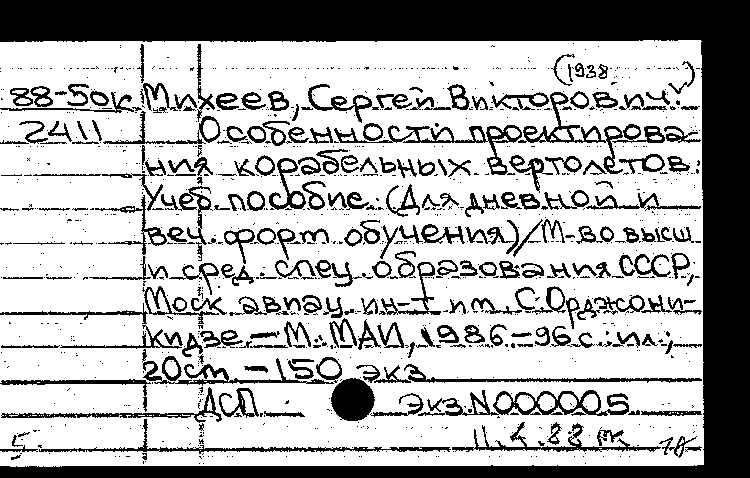 (1938 )
88-50к Михеев, Сергей Викторович.
2411 Особенности проектирова-
ния корабельных вертолетов:
Учеб. пособие. (Для дневной и
веч. форт обучения)/М-во высш
и сред. спец. образования СССР,
Моск авиац. ин-т им. С. Орджони-
кидзе. — М.: МАИ, 1986. — 96 с.: ил.;
20 см. — 150 экз.
ДСП Экз. N000005
5 11.4.88